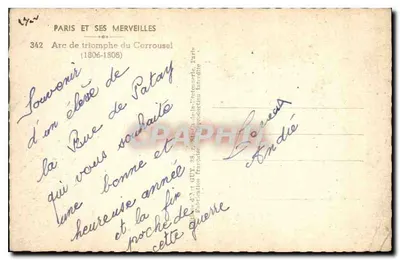 PARIS ET SES MERVEILLES
342 Arc de triomphe du Carrousel
(1806-1808)
Souvenir
d'un élève de
la Rue de Patay
qui vous souhaite
une bonne et
heureuse année
et la fin
proche de
cette guerre
André